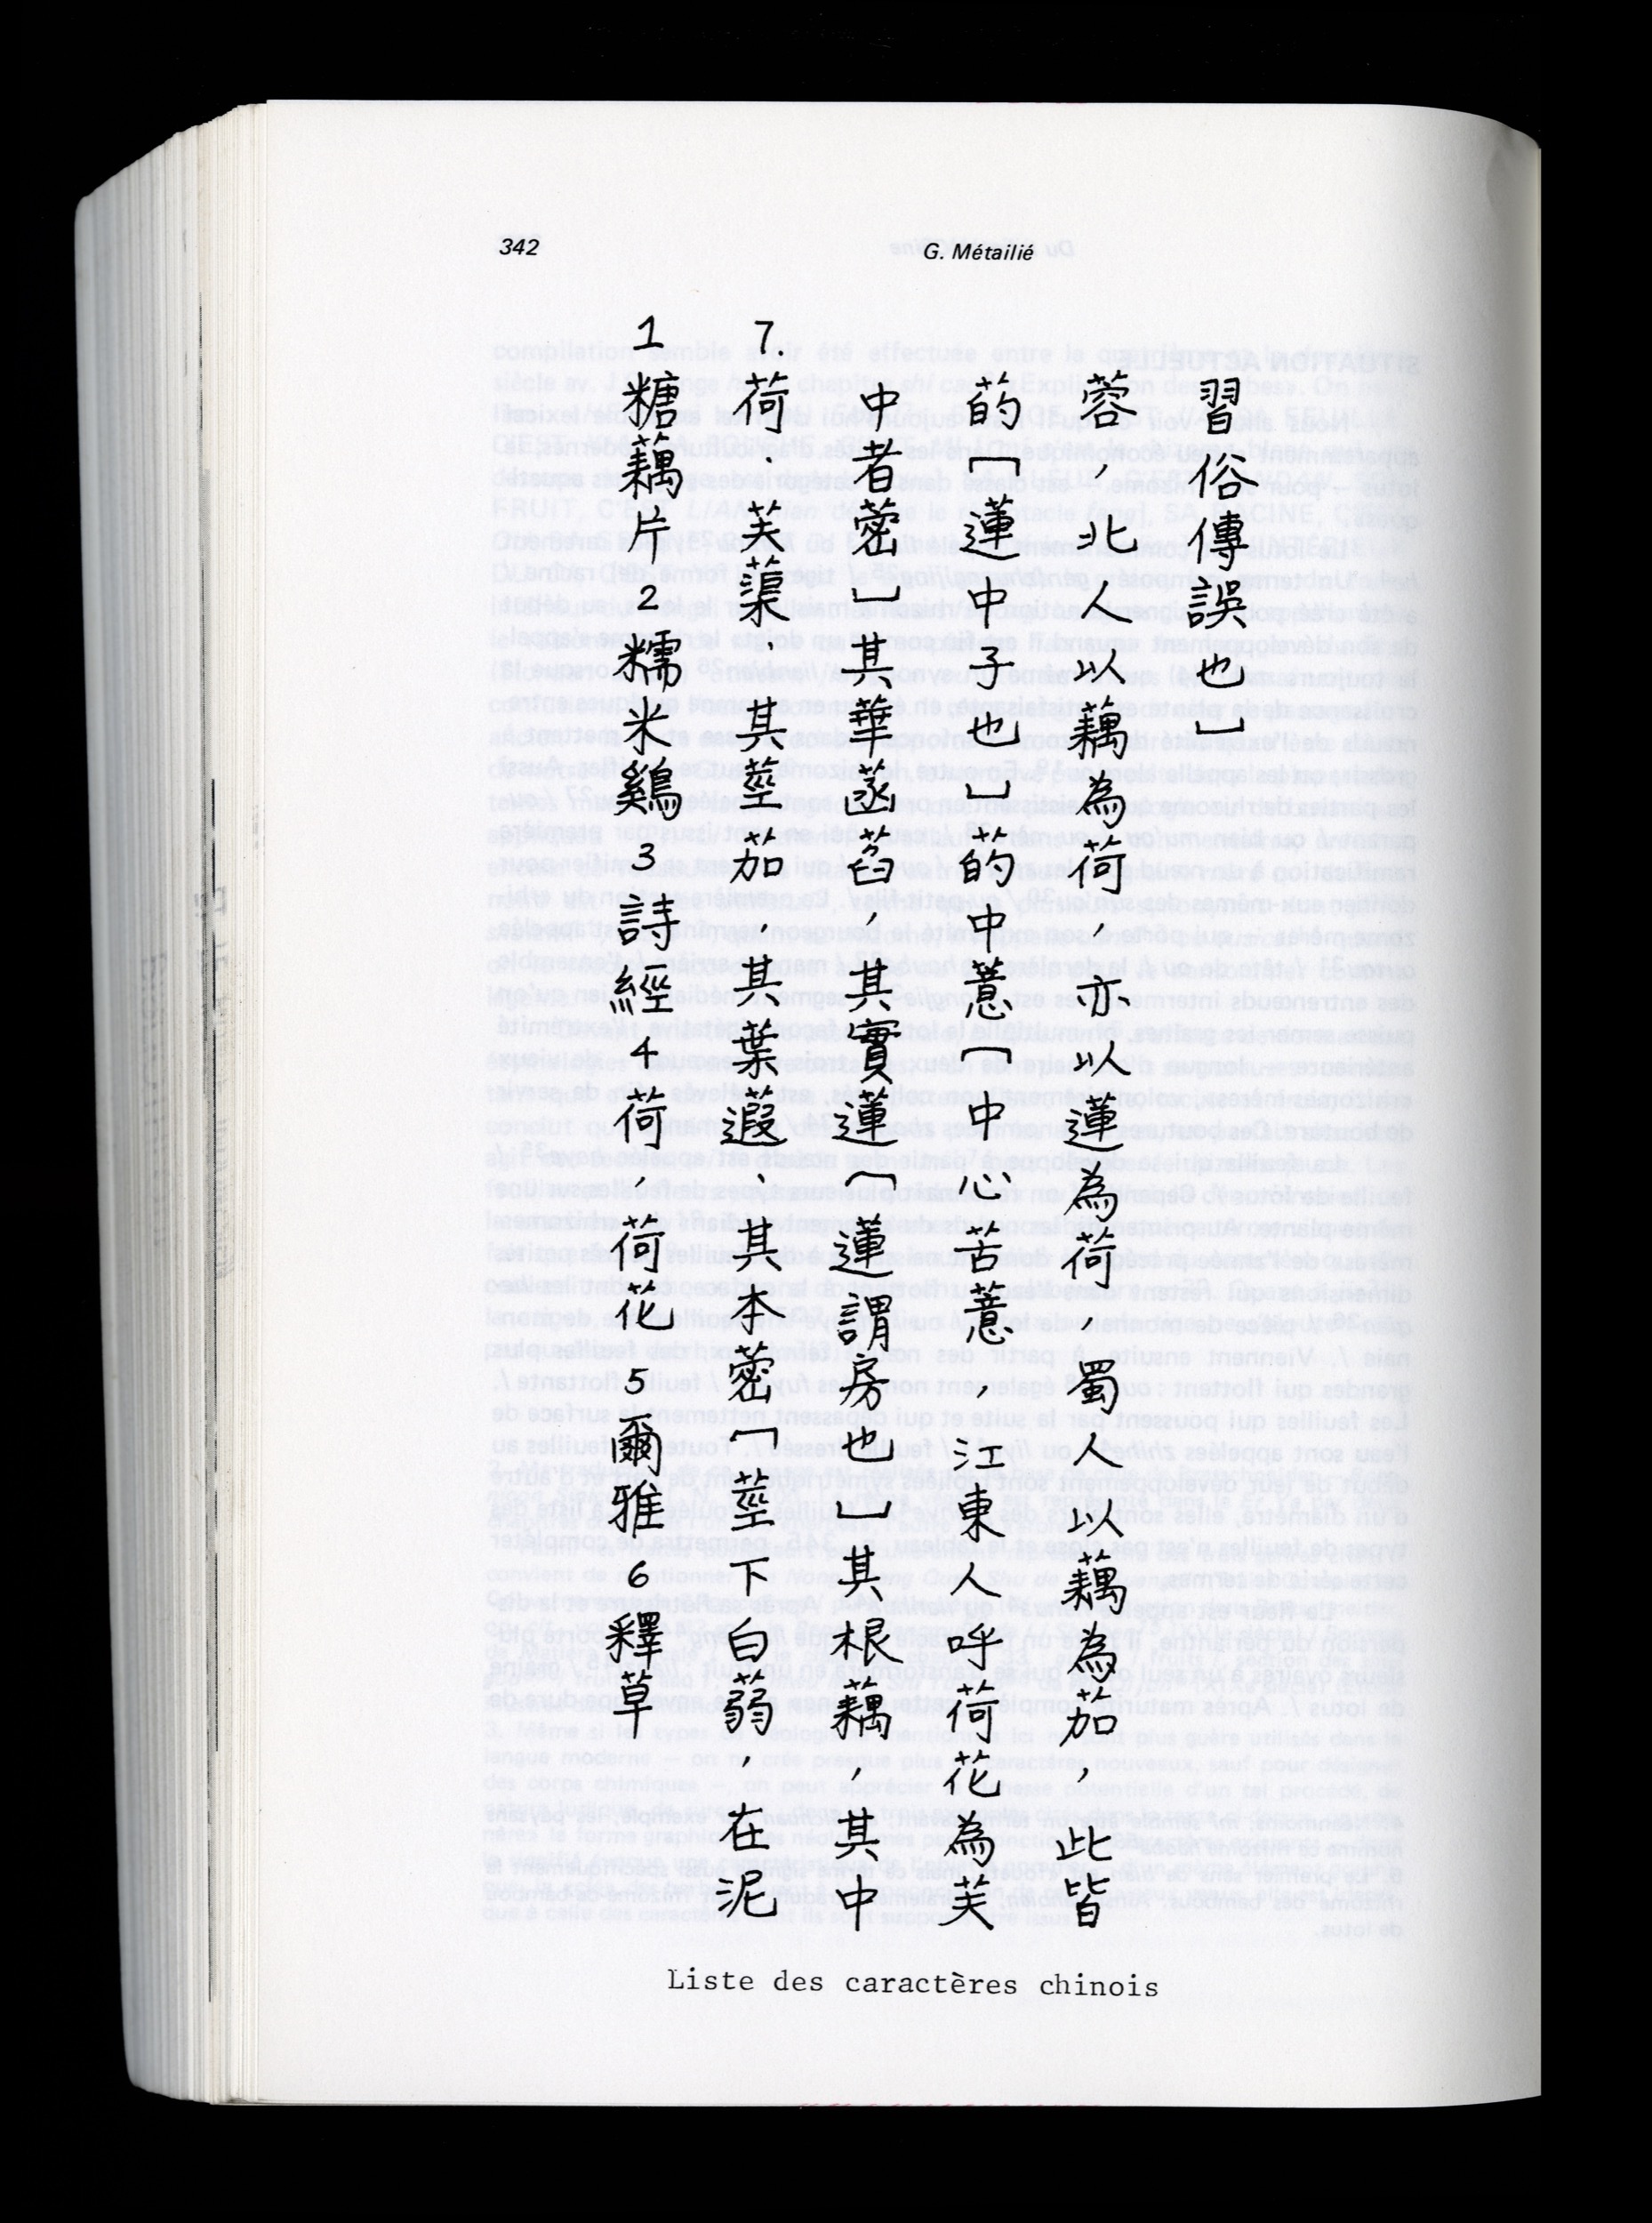 342
G. Métailié
1 糖藕片 2 糯米鷄 3 詩經 4 荷,荷花 5 爾雅 6 釋草
7. 荷.芙蕖.其莖茄,其葉蕸、其本蔤[莖下白蒻,在泥
中者蔤]其華菡萏,其實蓮[蓮謂房也]其根藕,其中
菂[蓮中子也]菂中薏[中心苦薏,江東人呼荷花為芙
蓉,北人以藕為荷,亦以蓮為荷,蜀人以藕為茄,此皆
習俗傳誤也]
Liste des caractères chinois